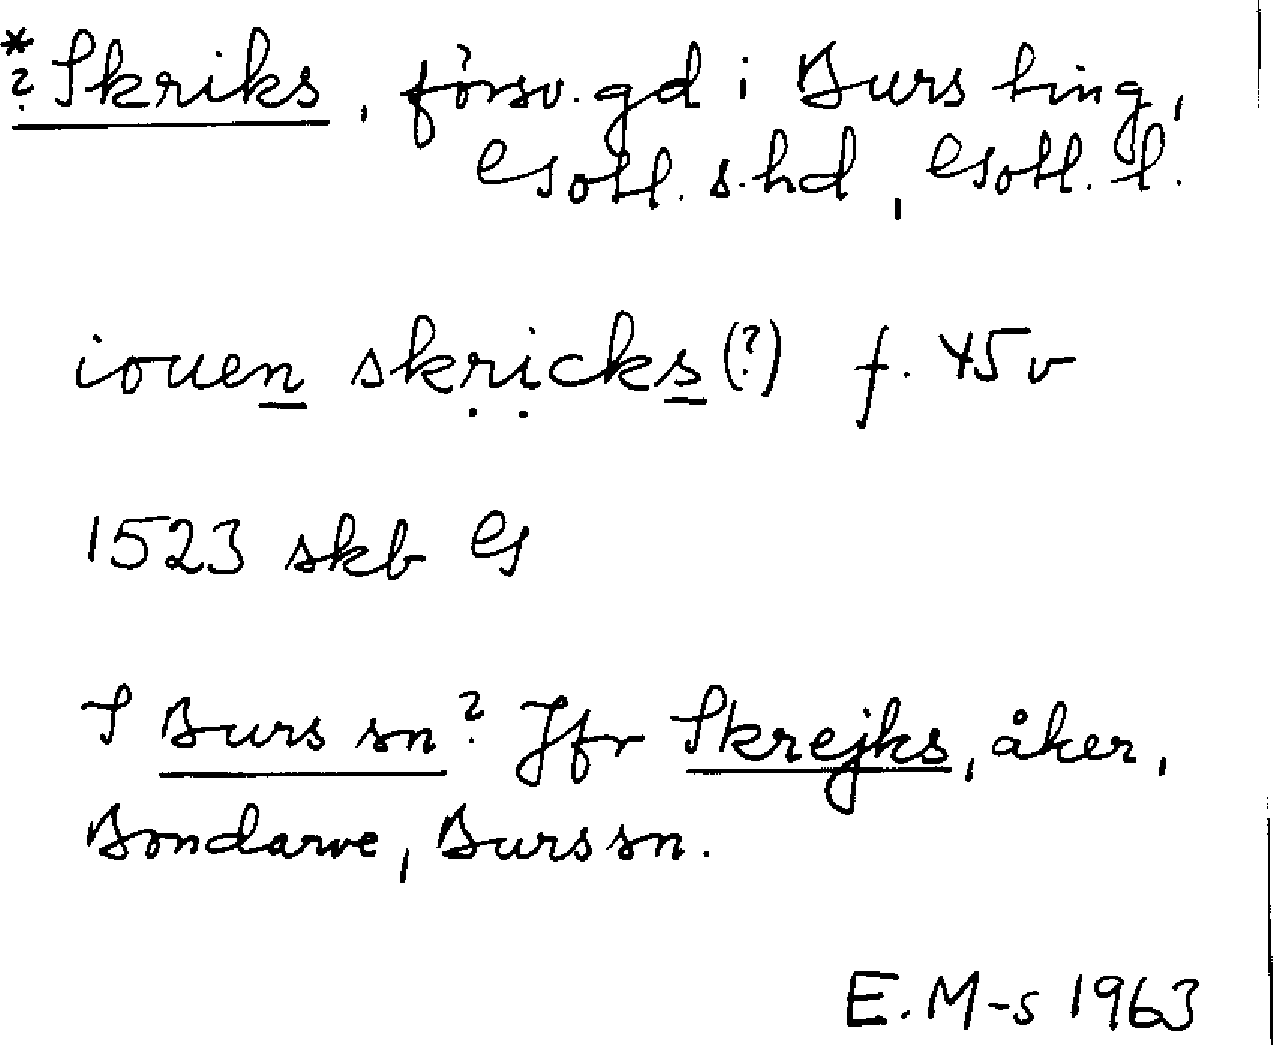 *? Skriks, försv. gd i Burs ting,
Gotl. s. hd, Gotl. l.
iouen skricks (?) f. 45 v
1523 skb G
I Burs sn? Jfr Skrejks, åker,
Bondarve, Burs sn.
E. M-s 1963